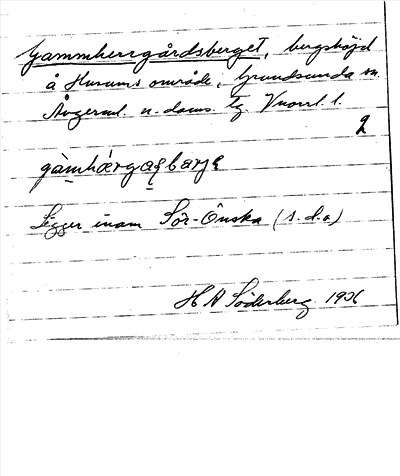 Gammherrgårdsberget, bergshöjd
å Husums område, Grundsunda sn.
Ångerml. n. doms. tg. Vnorrl. l.
2
gàmhǽrgaʂbarjə
Ligger inom Sör-Önska (s.d.o)
H A Söderberg 1936